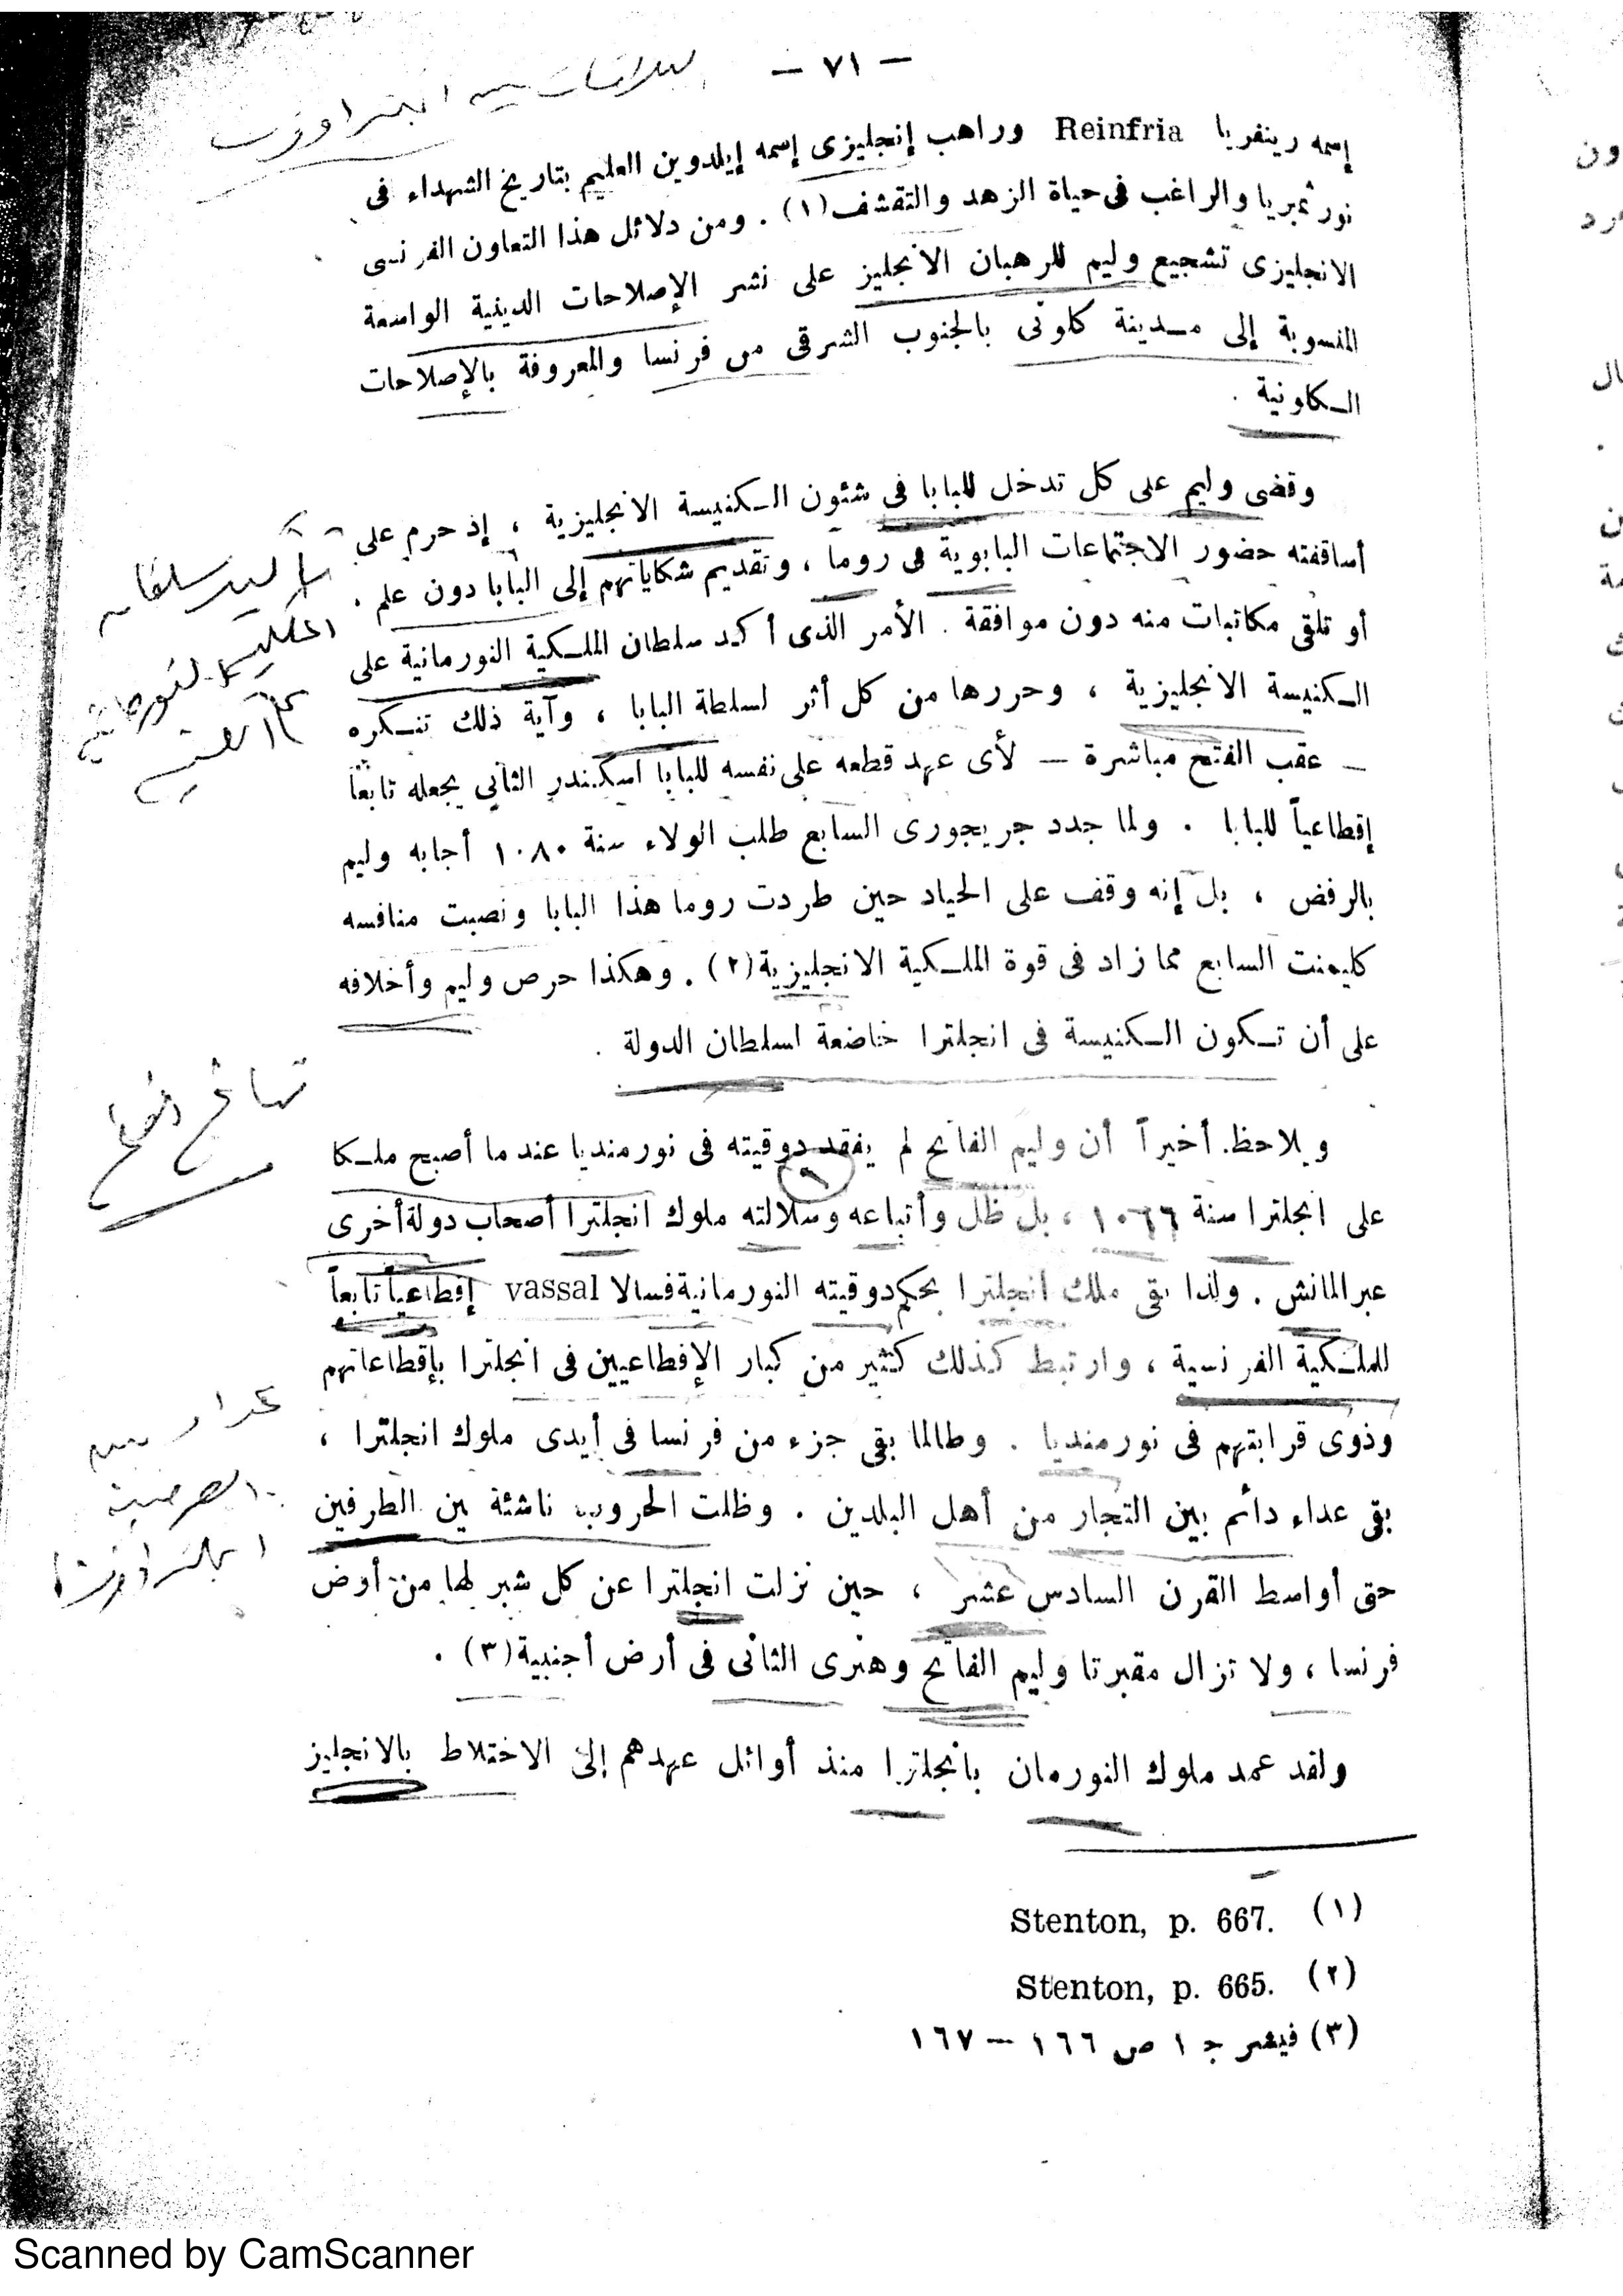 — ٧١ —
إسمه رينفريا Reinfria وراهب إنجليزى إسمه إيلدوين العليم بتاريخ الشهداء فى
نورثمبريا والراغب فى حياة الزهد والتقشف (١) . ومن دلائل هذا التعاون الفرنسى
الانجليزى تشجيع وليم للرهبان الانجليز على نشر الإصلاحات الدينية الواسعة
المنسوبة إلى مدينة كلونى بالجنوب الشرقى من فرنسا والمعروفة بالإصلاحات
الكلونية .
وقضى وليم على كل تدخل للبابا فى شئون الكنيسة الانجليزية ، إذ حرم على
أساقفته حضور الاجتماعات البابوية فى روما ، وتقديم شكاياتهم إلى البابا دون علم .
أو تلقى مكاتبات منه دون موافقة . الأمر الذى أكد سلطان الملكية النورمانية على
الكنيسة الانجليزية ، وحررها من كل أثر لسلطة البابا ، وآية ذلك تنكره
— عقب الفتح مباشرة — لأى عهد قطعه على نفسه للبابا اسكندر الثانى يجعله تابعاً
إقطاعياً للبابا . ولما جدد جريجورى السابع طلب الولاء سنة ١٠٨٠ أجابه وليم
بالرفض ، بل إنه وقف على الحياد حين طردت روما هذا البابا ونصبت منافسه
كليمنت السابع مما زاد فى قوة الملكية الانجليزية (٢) . وهكذا حرص وليم وأخلافه
على أن تكون الكنيسة فى انجلترا خاضعة لسلطان الدولة .
ويلاحظ أخيراً أن وليم الفاتح لم يفقد دوقيته فى نورمنديا عندما أصبح ملكا
على انجلترا سنة ١٠٦٦ ، بل ظل وأتباعه وسلالته ملوك انجلترا أصحاب دولة أخرى
عبر المانش . ولذا بقى ملك انجلترا بحكم دوقيته النورمانية فسالا vassal إقطاعياً تابعاً
للملكية الفرنسية ، وارتبط كذلك كثير من كبار الإقطاعيين فى انجلترا بإقطاعاتهم
وذوى قرابتهم فى نورمنديا . وطالما بقى جزء من فرنسا فى أيدى ملوك انجلترا ،
بقى عداء دائم بين التجار من أهل البلدين . وظلت الحروب ناشئة بين الطرفين
حتى أواسط القرن السادس عشر ، حين نزلت انجلترا عن كل شبر لها من أرض
فرنسا ، ولا تزال مقبرتا وليم الفاتح وهنرى الثانى فى أرض أجنبية (٣) .
ولقد عمد ملوك النورمان بانجلترا منذ أوائل عهدهم إلى الاختلاط بالانجليز
(١) Stenton, p. 667.
(٢) Stenton, p. 665.
(٣) فيشر ج ١ ص ١٦٦ — ١٦٧
Scanned by CamScanner